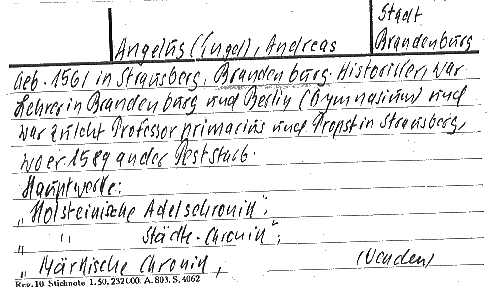 Stadt
Angelus (Engel), Andreas
Brandenburg
Geb. 1561 in Strausberg, Brandenburg. Historiker, war
Lehrer in Brandenburg und Berlin (Gymnasium) und
war zuletzt Professor primarius und Propst in Strausberg,
wo er 1589 an der Pest starb.
Hauptwerke:
„Holsteinische Adelschronik";
„ " Städte-Chronik";
„Märkische Chronik,
(Wenden)
Reg. 10. Stichnote 1. 50. 232000. A. 803. S. 4062